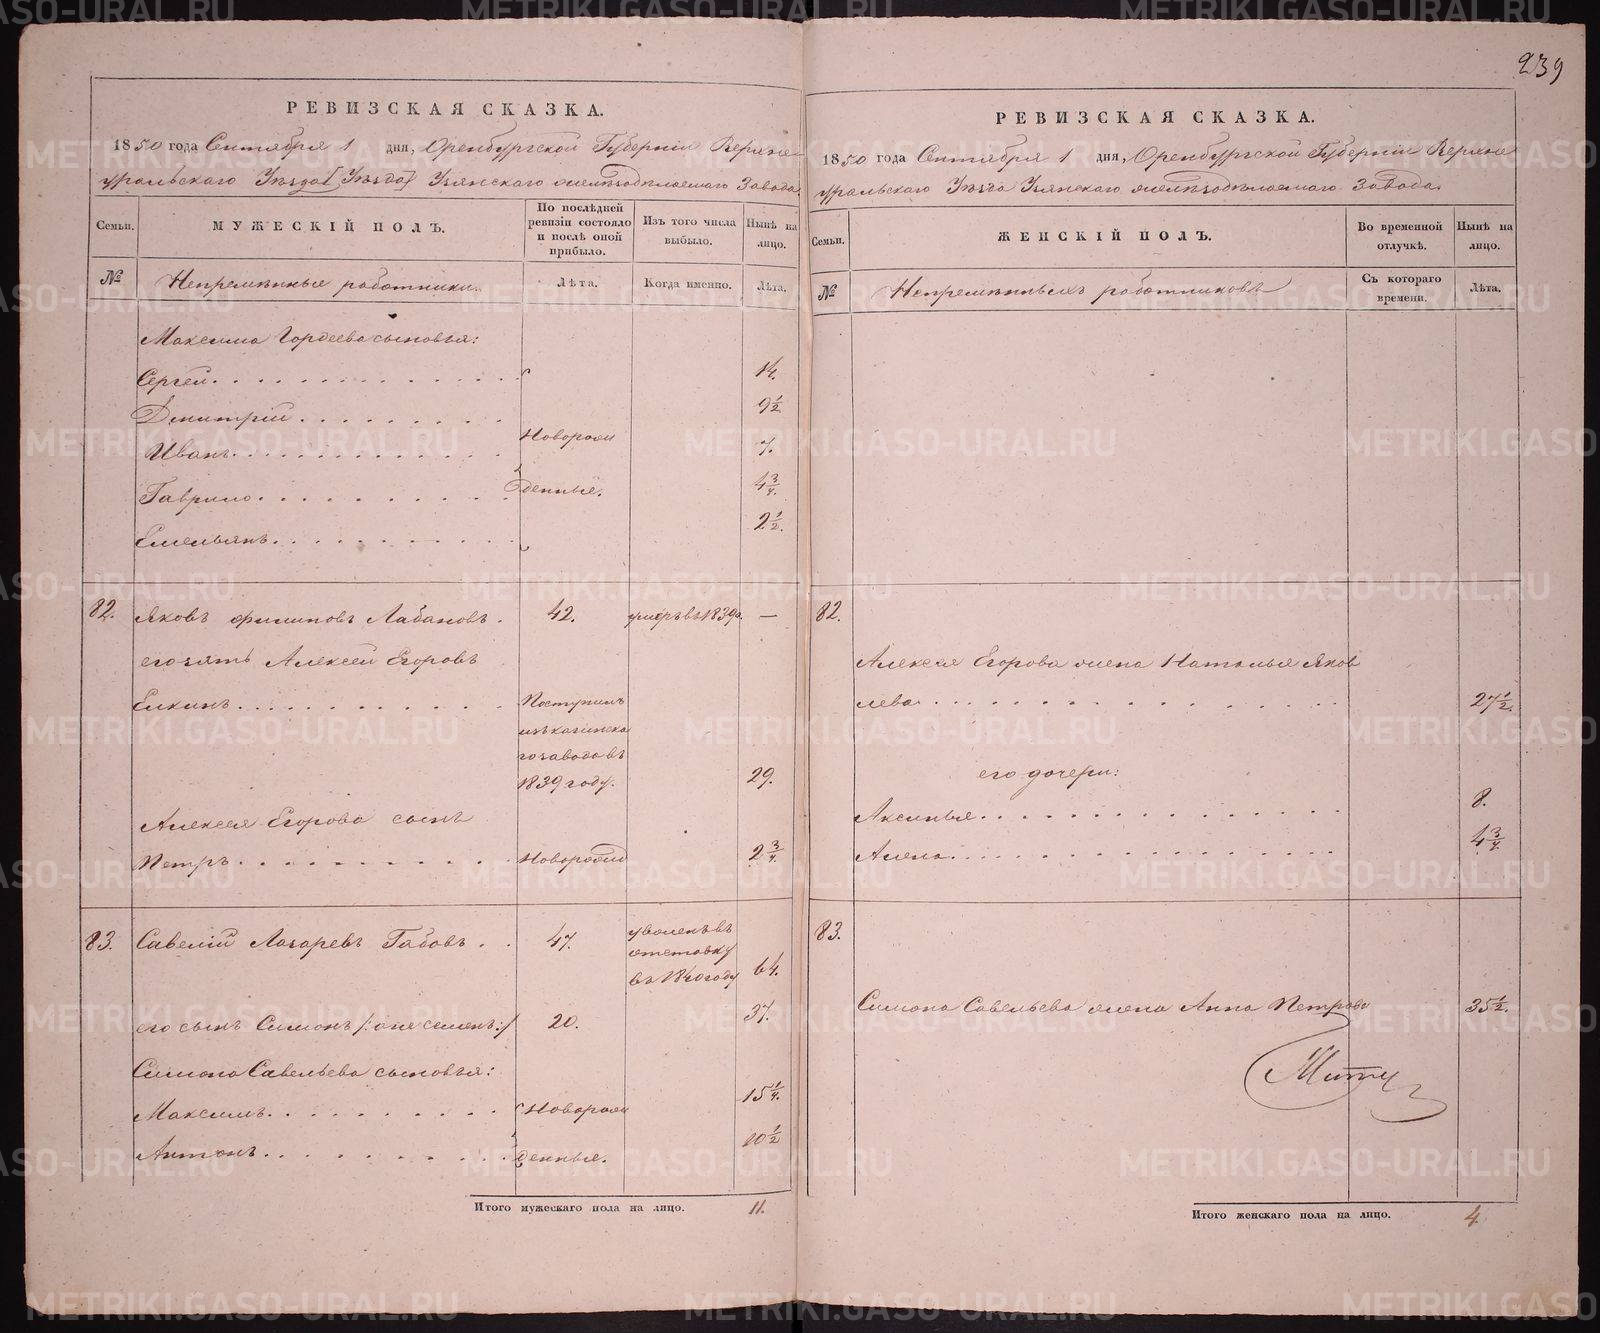 239
РЕВИЗСКАЯ СКАЗКА.
1850 года Сентября 1 дня, Оренбургской Губерніи Верхне
уральскаго Уѣзда [Уѣзда] Узянскаго желѣзодѣлаемаго Завода
Семьи.
МУЖЕСКІЙ ПОЛЪ.
По послѣдней ревизіи состояло и послѣ оной прибыло.
Изъ того числа выбыло.
Нынѣ на лицо.
№
Непремѣнные работники.
Лѣта.
Когда именно.
Лѣта.
Максима Гордеева сыновья:
Сергей 14.
Дмитрій 9½
Иванъ Новорож 7.
Гаврило денные. 4¾.
Емельянъ 2½.
82. Яковъ Филиповъ Лабановъ. 42. умеръ въ 1839 г. —
его зять Алексей Егоровъ
Елкинъ Поступилъ
изъ кагинска
го завода въ
1839 году. 29.
Алексея Егорова сынъ
Петръ Новорожд 2¾.
83. Савелій Лазаревъ Габовъ 47. уволенъ въ
отставку
въ 1840 году 64.
его сынъ Симонъ /: а не семенъ:/ 20. 37.
Симона Савельева сыновья:
Максимъ Новорож 15¼.
Антонъ денные. 10½
Итого мужескаго пола на лицо. 11.
РЕВИЗСКАЯ СКАЗКА.
1850 года Сентября 1 дня, Оренбургской Губерніи Верхне
уральскаго Уѣзда Узянскаго желѣзодѣлаемаго Завода.
Семьи.
ЖЕНСКІЙ ПОЛЪ.
Во временной отлучкѣ.
Нынѣ на лицо.
№
Непремѣнныхъ работниковъ
Съ котораго времени.
Лѣта.
82.
Алексея Егорова жена Наталья Яков
лева 27½.
его дочери:
Аксинья 8.
Алена 4¾.
83.
Симона Савельева жена Анна Петрова 35½.
Итого женскаго пола на лицо. 4
METRIKI.GASO-URAL.RU